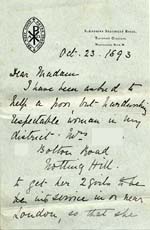 Oct. 23. 1893
Dear Madam
I have been asked to
help a poor but hardworking
respectable woman in my
district - Mrs
Bolton Road
Notting Hill.
to get her 2 girls to be
service in or near
London, so that she